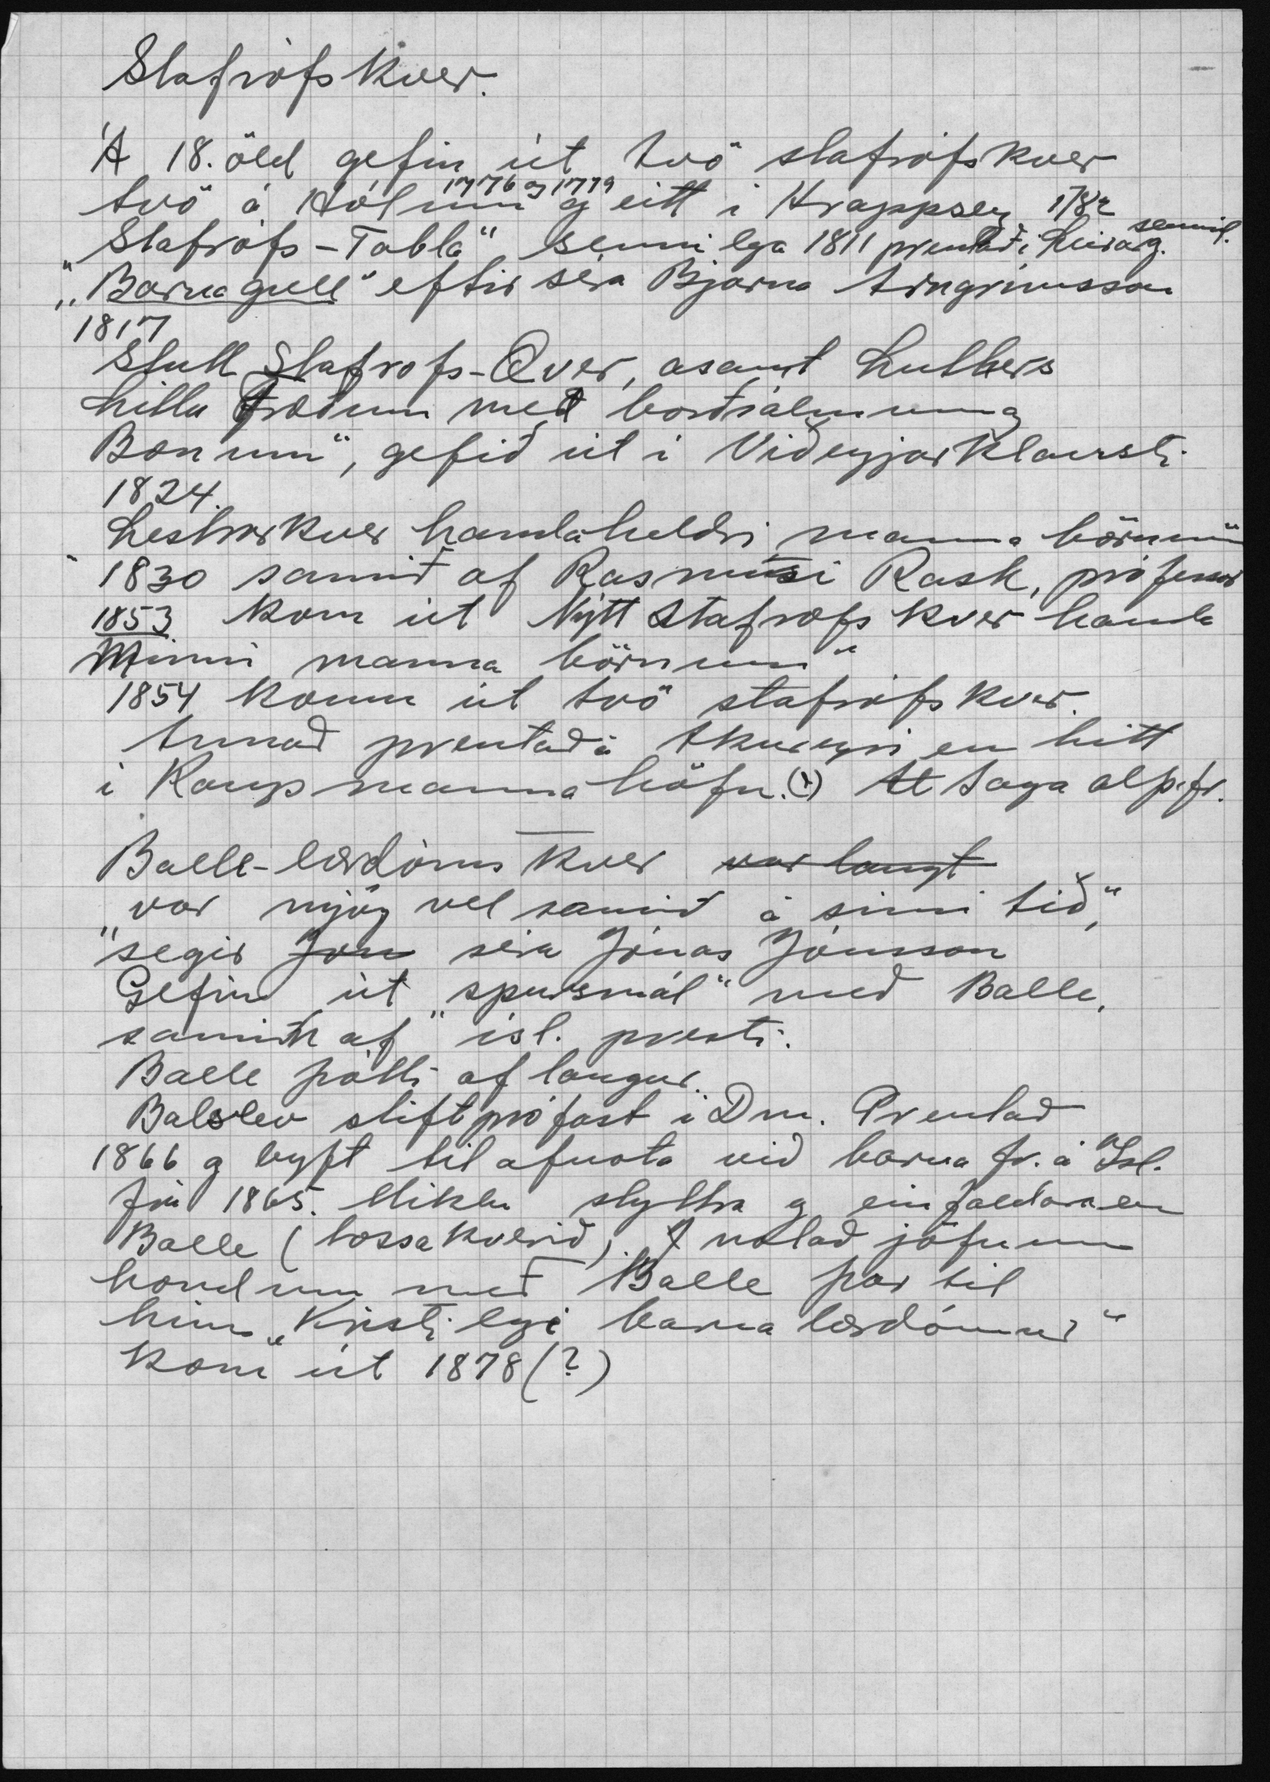 Stafrófskver.
Á 18. öld gefin út tvö stafrófskver
1776 og 1779
tvö á Hólum og eitt í Hrappsey 1782
sennil.
"Stafrófs-Tabla" sennilega 1811 prentað í Leirárg.
"Barnagull" eftir séra Bjarna Arngrímsson
1817
Stutt Stafrofs-Qver, asamt Luthers
litlu Fræðum með borðsálmum og
Bænum", gefið út í Viðeyjarklaustri
1824.
Lestrarkver handa heldri manna börnum"
1830 samið af Rasmusi Rask, prófessor
1853 kom út Nýtt stafrofs kver handa
Minni manna börnum"
1854 komu út tvö stafrófskver.
Annað prentað á Akureyri en hitt
í Kaupmannahöfn. At Saga alþ.fr.
Balle-lærdóms kver var langt
"var mjög vel samið á sinni tíð",
segir Jón séra Jónas Jónsson
Gefin út "spursmál" með Balle,
samin af ísl. presti.
Balle þótti of langur.
Balslev stiftprófast í Dm. Prentað
1866 og leyft til afnota við barnafr. á Ísl.
frá 1865. Miklu styttra og einfaldara en
Balle (tossakverið). notað jöfnum
höndum með Balle þar til
hinn "Kristilegi barnalærdómur"
kom út 1878 (?)